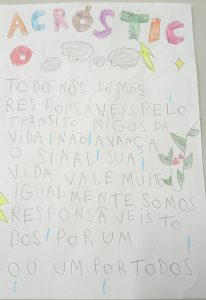 ACRÓSTICO
TODO NÓS SOMOS
RESPONSÁVEIS PELO
TRÂNSITO MIGOS DA
VIDA NÃO AVANÇA
O SINAL SUA
VIDA VALE MUITO
IGUALMENTE SOMOS
RESPONSÁVEIS TO
DOS POR UM
OU UM POR TODOS